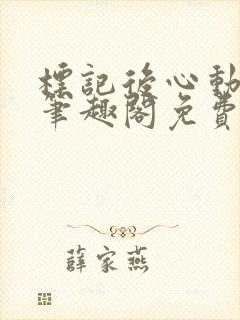 標記後心動
筆趣閣免費
薛家燕